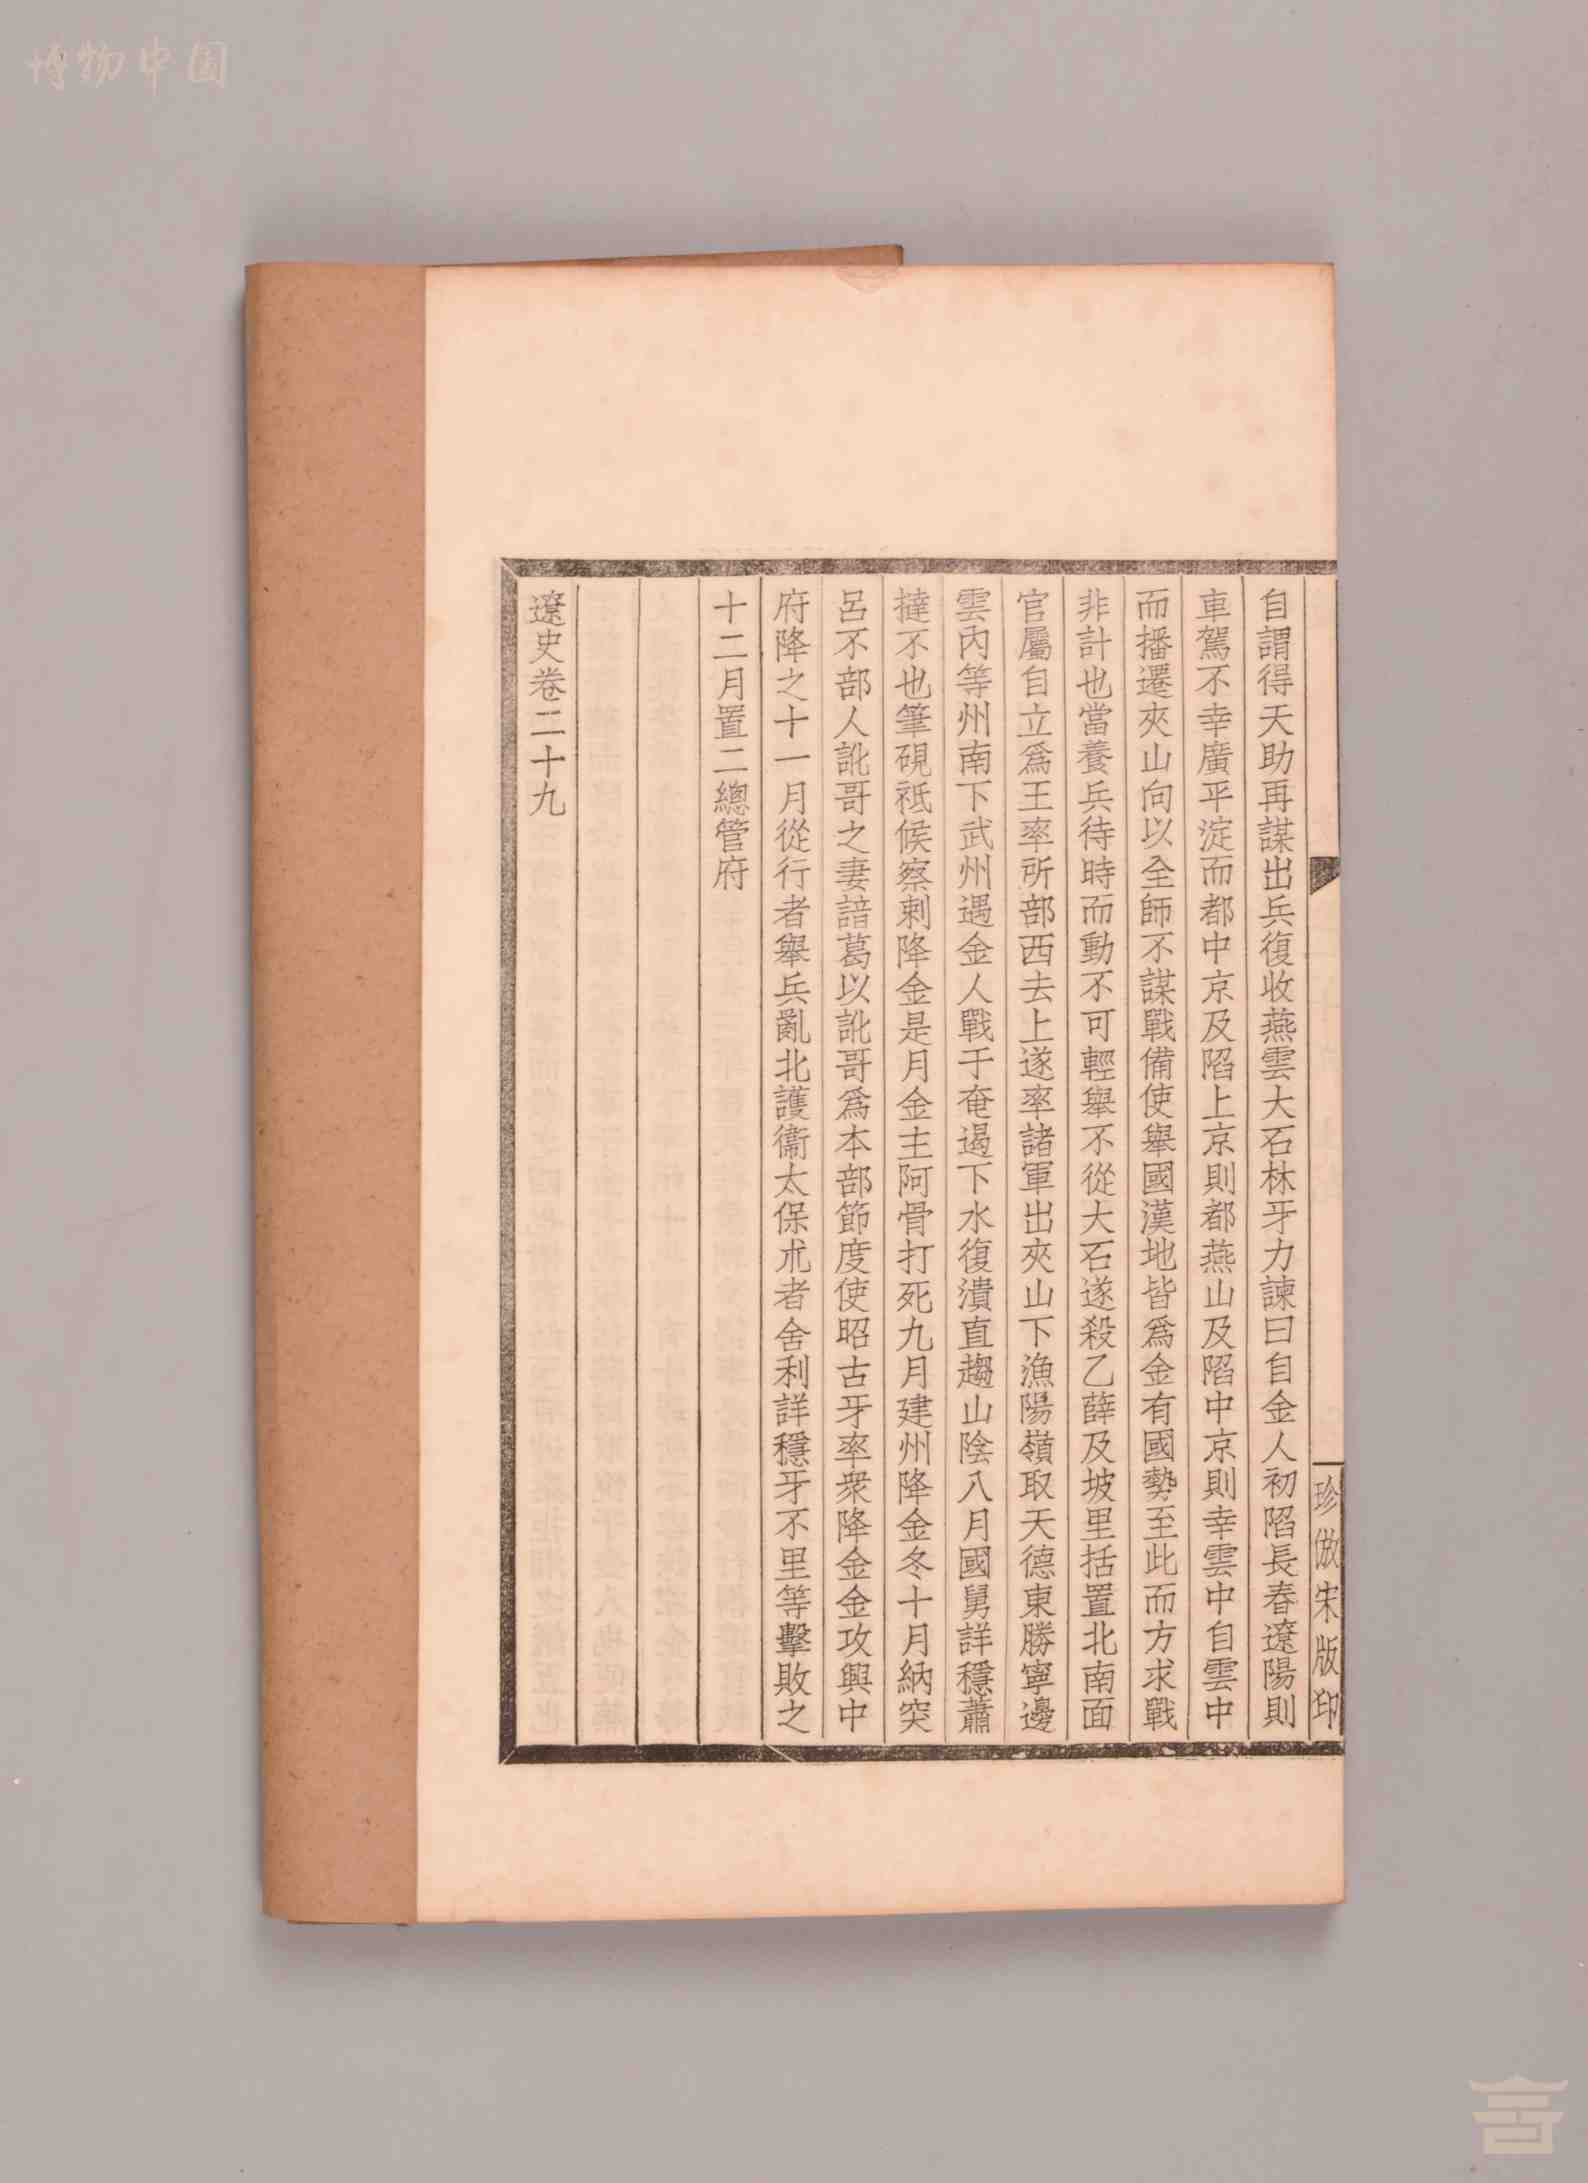 博物中国
自謂得天助再謀出兵復收燕雲大石林牙力諫曰自金人初陷長春遼陽則
車駕不幸廣平淀而都中京及陷上京則都燕山及陷中京則幸雲中自雲中
而播遷夾山向以全師不謀戰備使舉國漢地皆爲金有國勢至此而方求戰
非計也當養兵待時而動不可輕舉不從大石遂殺乙薛及坡里括置北南面
官屬自立爲王率所部西去上遂率諸軍出夾山下漁陽嶺取天德東勝寧邊
雲內等州南下武州遇金人戰于奄遏下水復潰直趨山陰八月國舅詳穩蕭
撻不也筆硯祗候察剌降金是月金主阿骨打死九月建州降金冬十月納突
呂不部人訛哥之妻諳葛以訛哥爲本部節度使昭古牙率衆降金金攻興中
府降之十一月從行者舉兵亂北護衞太保朮者舍利詳穩牙不里等擊敗之
十二月置二總管府
遼史卷二十九
珍倣宋版印